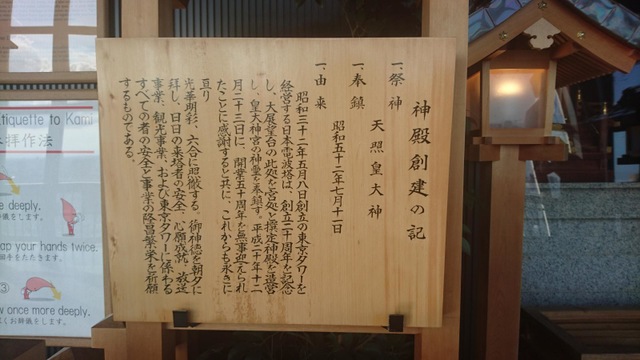 神殿創建の記
一、祭神
天照皇大神
一、奉鎮
昭和五十二年七月十一日
一、由来
昭和三十二年五月八日創立の東京タワーを
経営する日本電波塔は、創立二十周年を記念
し、大展望台の此処を宮処と撰定神殿を造営
し、皇大神宮の神霊を奉鎮す。平成二十年十二
月二十三日に、開業五十周年を無事迎えられ
たことに感謝すると共に、これからも永きに
亘り
光華明彩、六合に照徹する。御神徳を朝夕に
拝し、日日の来塔者の安全、心願成就、放送
事業、観光事業、および東京タワーに係わる
すべての者の安全と事業の隆昌繁栄を祈願
するものである。
tiquette to Kami
拝作法
deeply.
儀をします。
ap your hands twice.
回手をたたきます。
③
w once more deeply.
くお辞儀をします。